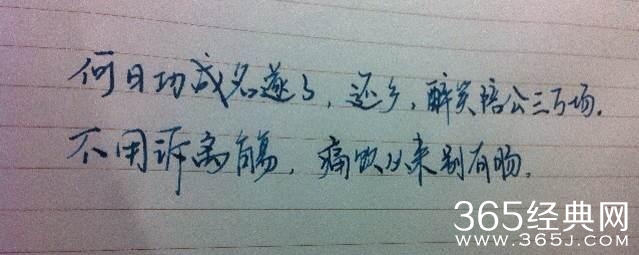 何日功成名遂了，还乡，醉笑陪公三万场。
不用诉离觞，痛饮从来别有肠。
365经典网
WWW.365J.COM